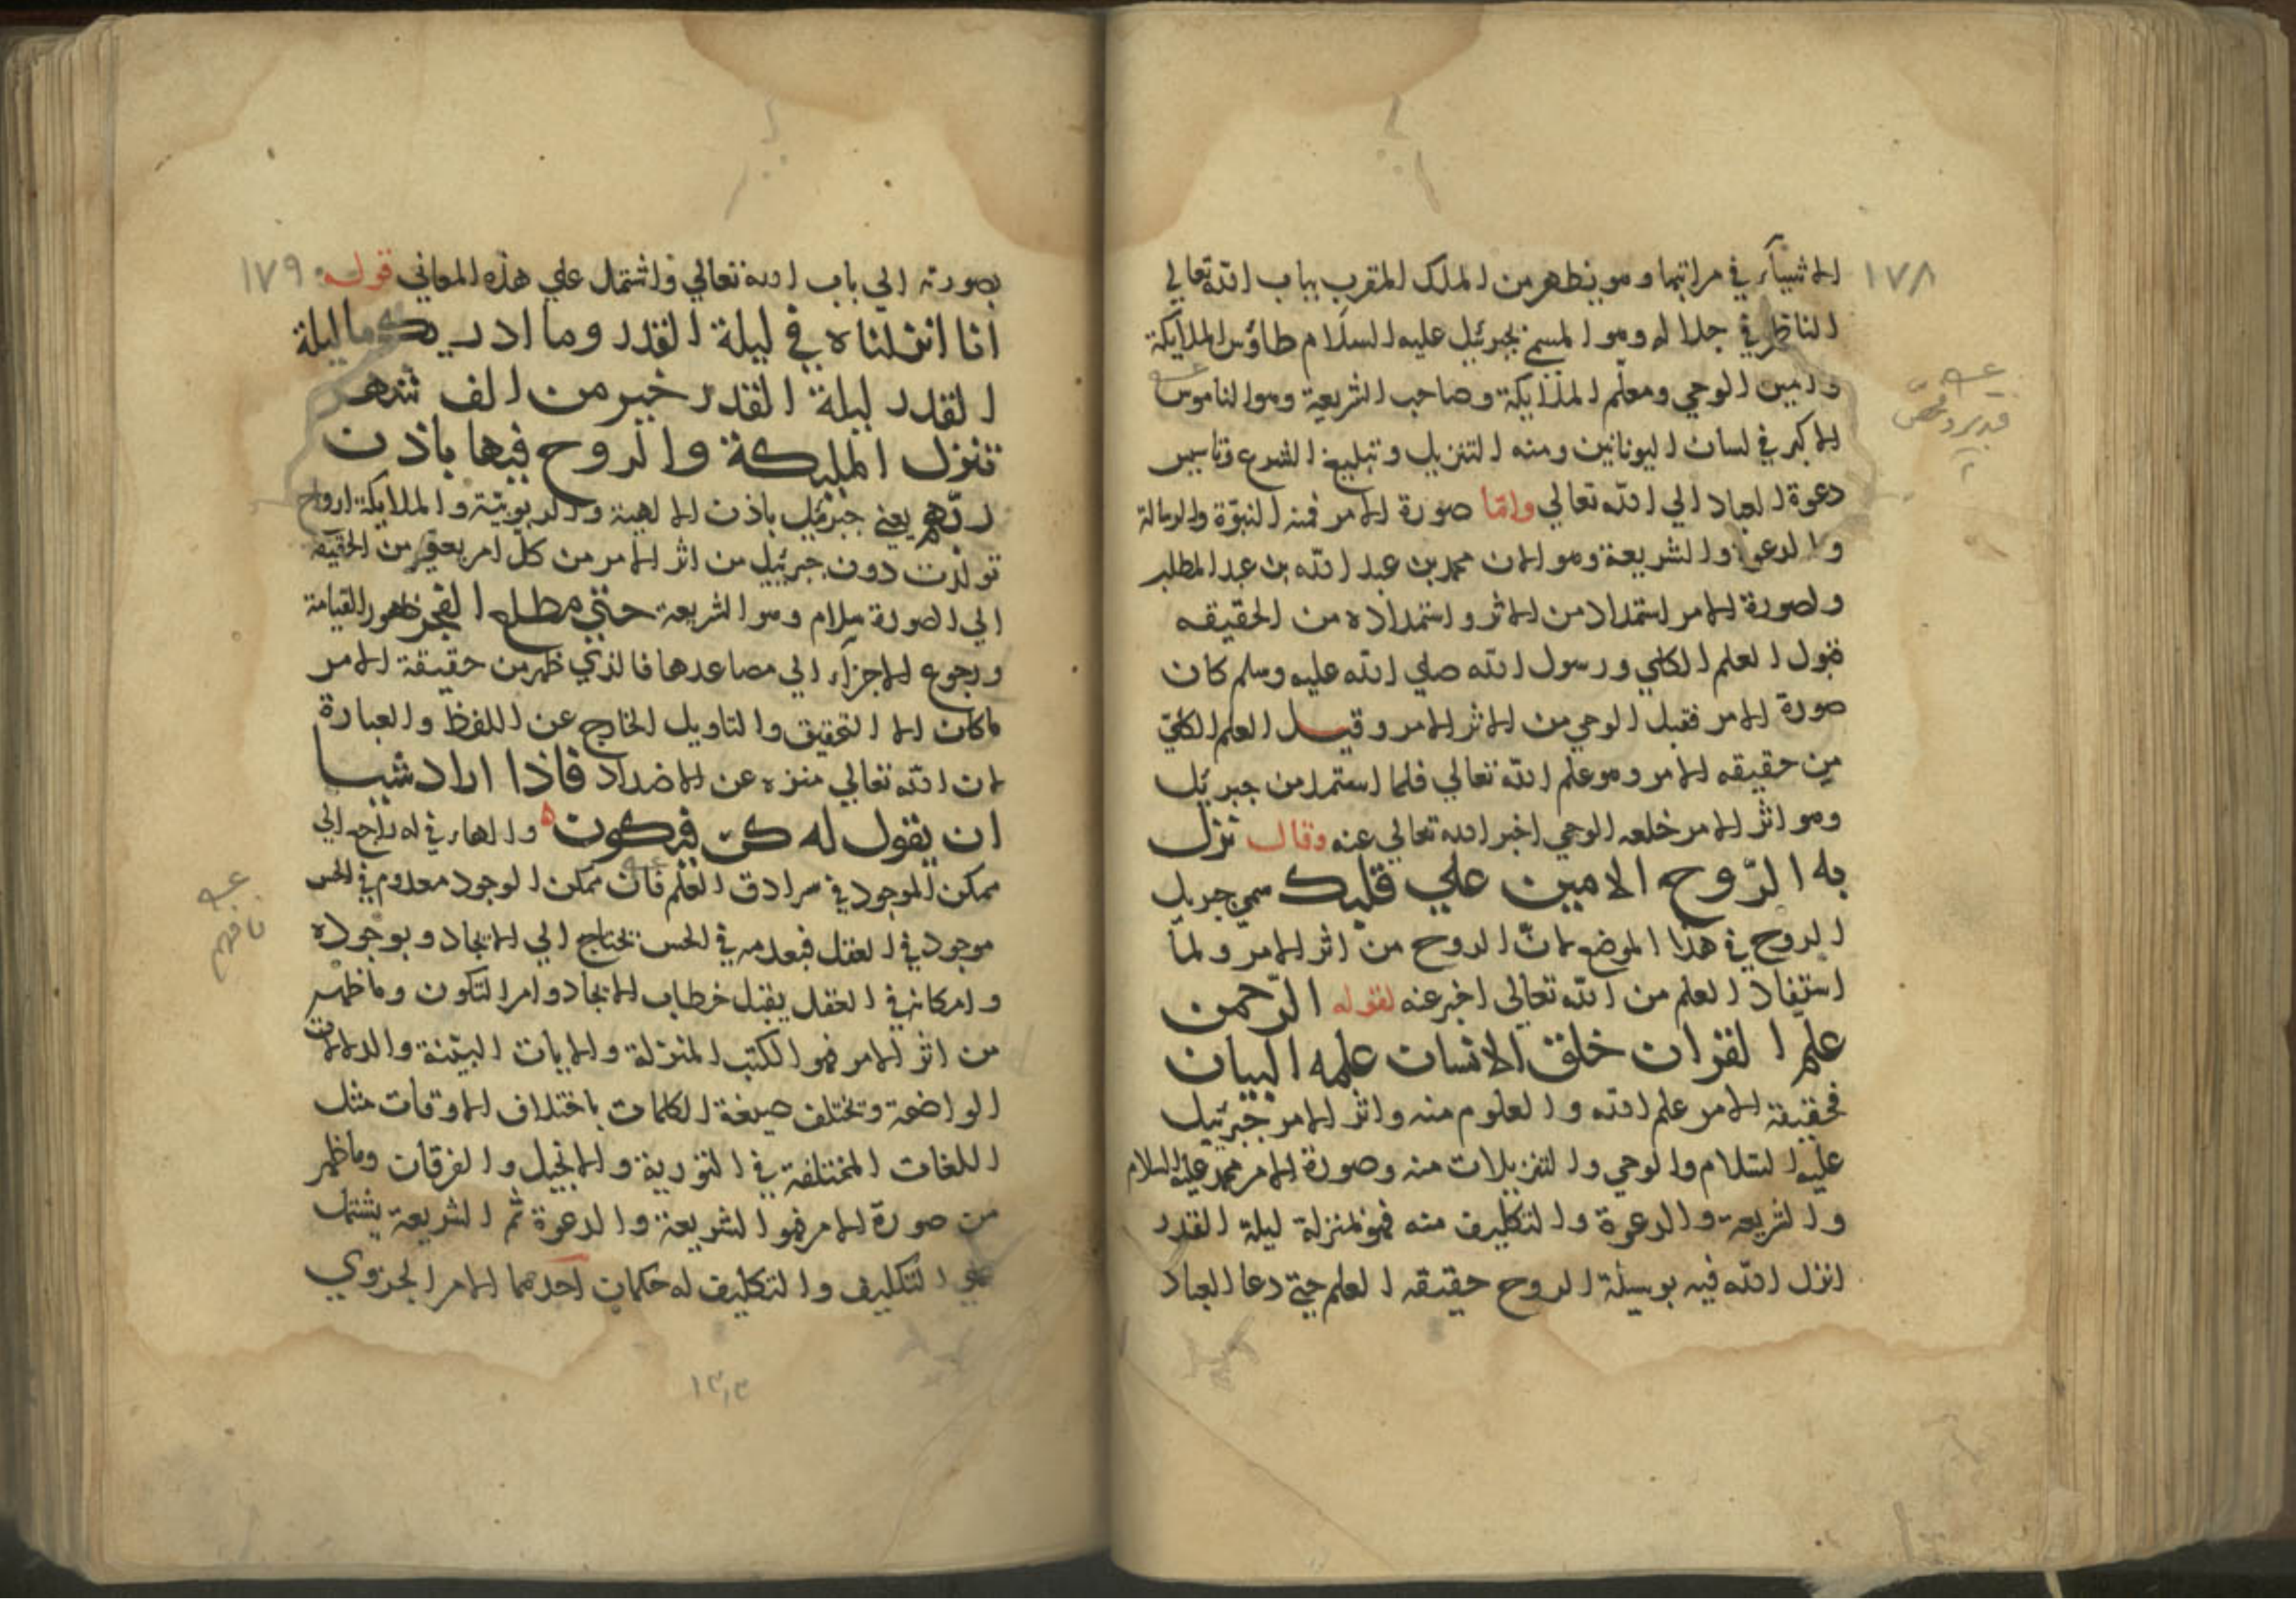 ١٧٨
الاشياء في مراتبها وهو يظهر من الملك المقرب بباب الله تعالى
الناظر في جلاله وهو المسمى بجبرئيل عليه السلام طاؤس الملائكة
وامين الوحي ومعلم الملائكة وصاحب الشريعة وهو الناموس
الاكبر في لسان اليونانين ومنه التنزيل وتبليغ الشرع وتاسيس
دعوة العباد الي الله تعالي واما صورة الامر فمنه النبوة والرسالة
والدعوة والشريعة وهو الان محمد بن عبد الله بن عبد المطلب
ولصورة الامر استمداد من الاثر واستمداده من الحقيقه
قبول العلم الكلي ورسول الله صلي الله عليه وسلم كان
صورة الامر فقبل الوحي من الاثر الامر وقبل العلم الكلي
من حقيقه الامر وهو علم الله تعالي فلما استمد من جبرئيل
وهو اثر الامر خلعه الوحي اخبر الله تعالي عنه وقال نزل
به الرّوح الامين علي قلبك سمي جبريل
الروح في هذا الموضع لانّ الروح من اثر الامر ولمّا
استفاد العلم من الله تعالي اخبر عنه لقوله الرّحمن
علم القران خلق الانسان علمه البيان
فحقيقة الامر علم الله والعلوم منه واثر الامر جبرئيل
عليه السلام والوحي والتنزيلات منه وصورة الامر محمد عليه السلام
والشريعة والدعوة والتكليف منه فهو بمنزلة ليلة القدر
انزل الله فيه بوسيلة الروح حقيقه العلم حتي دعا العباد
١٧٩
بصورته الي باب الله تعالي واشتمل علي هذه المعاني قوله
انا انزلناه في ليلة القدر وما ادريك ما ليلة
القدر ليلة القدر خير من الف شهر
تنزل المليكة والروح فيها باذن
ربّهم يعني جبرئيل باذن الالهية والربوبيّة والملايكة ارواح
تولدت دون جبرئيل من اثر الامر من كل امر يعني من الحقيقه
الي الصورة سلام وهو الشريعة حتي مطلع الفجر ظهور القيامة
ورجوع الاجزآء الي مصاعدها فالذي ظهر من حقيقة الامر
ما كان الا التحقيق والتاويل الخارج عن اللفظ والعبارة
لان الله تعالي منزه عن الاضداد فاذا اراد شيا
ان يقول له كن فيكون والهاء في له راجع الي
ممكن الموجود في سرادق العلم فان ممكن الوجود معدوم في الحس
موجود في العقل فبعدمه في الحس يحتاج الي الايجاد وبوجوده
وامكانه في العقل يقبل خطاب الايجاد وامر التكون وما ظهر
من اثر الامر فهو الكتب المنزلة والايات البيّنة والدلالات
الواضحة وتختلف صيغة الكلمات باختلاف الاوقات مثل
اللغات المختلفة في التورية والانجيل والفرقان وما ظهر
من صورة الامر فهو الشريعة والدعوة ثم الشريعة يشتمل
علي التكليف والتكليف له حكمان احدهما الامر الجزوي
فافهم